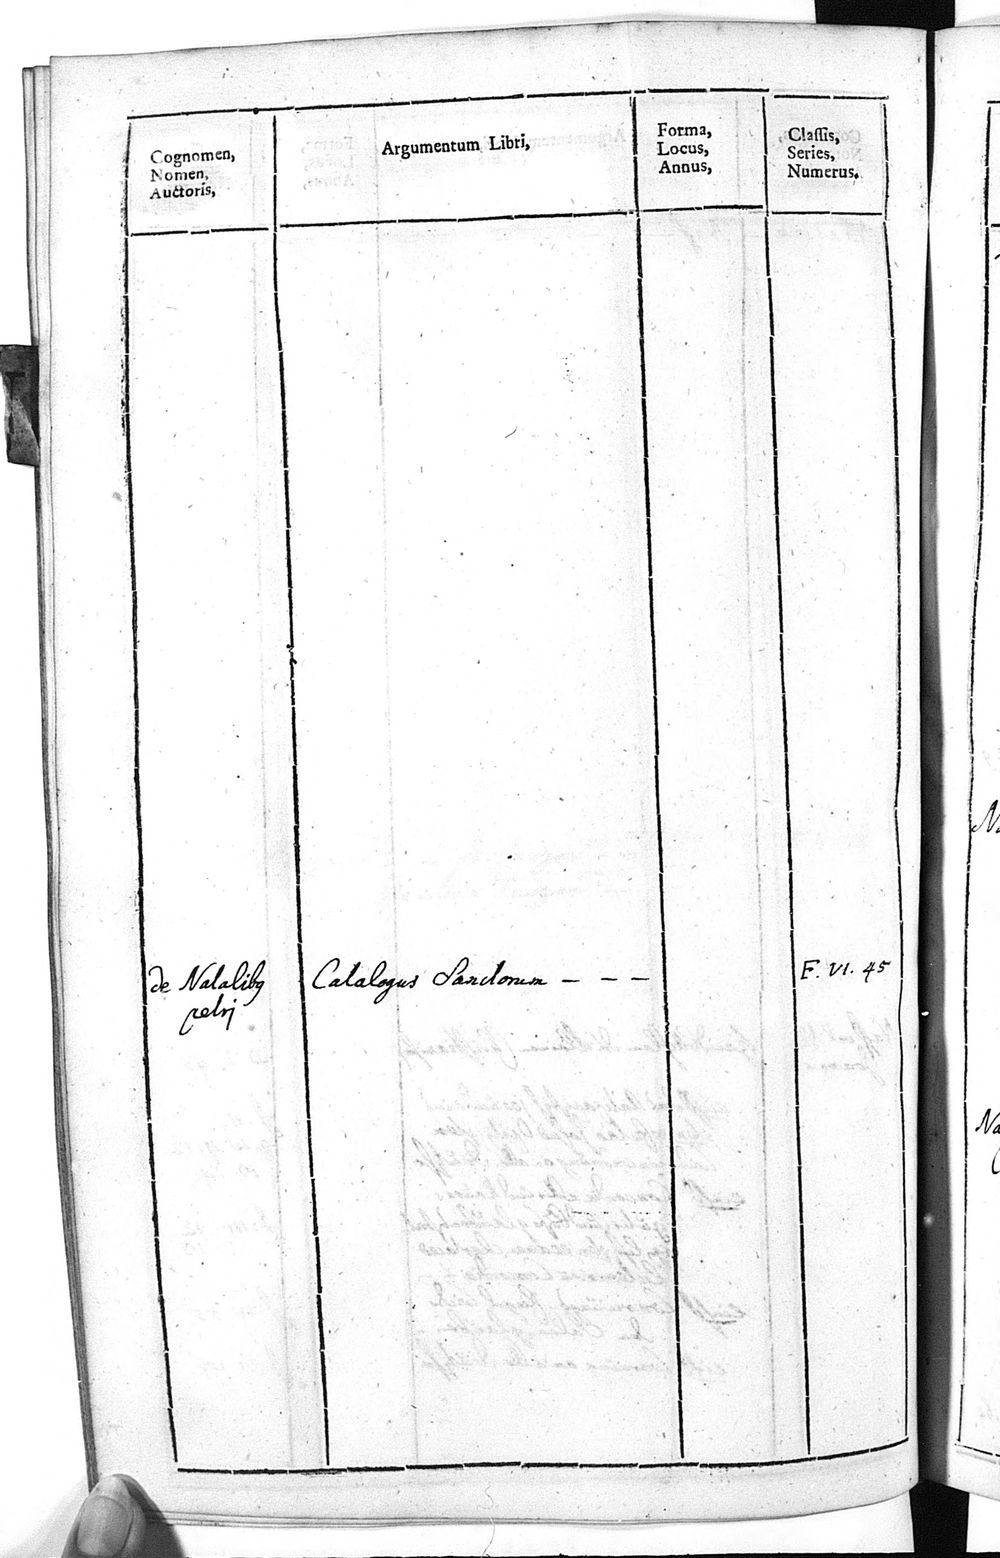 Cognomen,
Nomen,
Auctoris,
Argumentum Libri,
Forma,
Locus,
Annus,
Classis,
Series,
Numerus,
de Natalibg Catalogus Sanctorum – – – F. VI. 45
petrj
N
Na